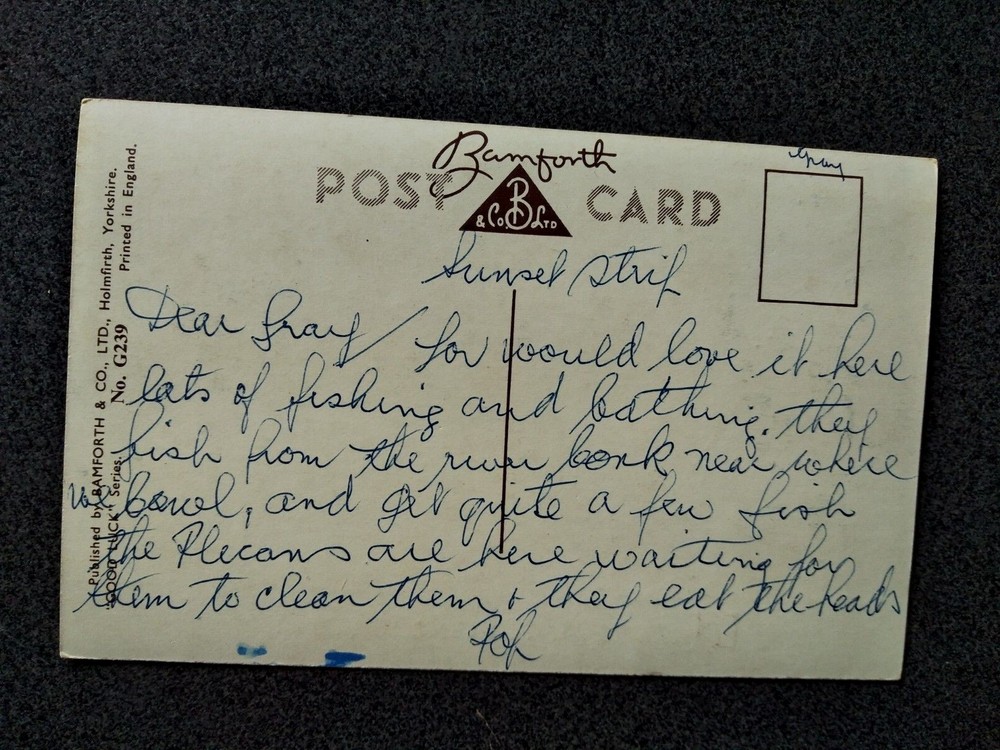 Bamforth
POST CARD
B
& Co. LTD
Gray
Sunset Strip
Dear Gray / You would love it here
lots of fishing and bathing. they
fish from the river bank near where
we bowl, and get quite a few fish
the Plecans are here waiting for
them to clean them + they eat the heads
Pop
Published by BAMFORTH & CO., LTD., Holmfirth, Yorkshire.
"GOOD LUCK" Series. No. G239 Printed in England.